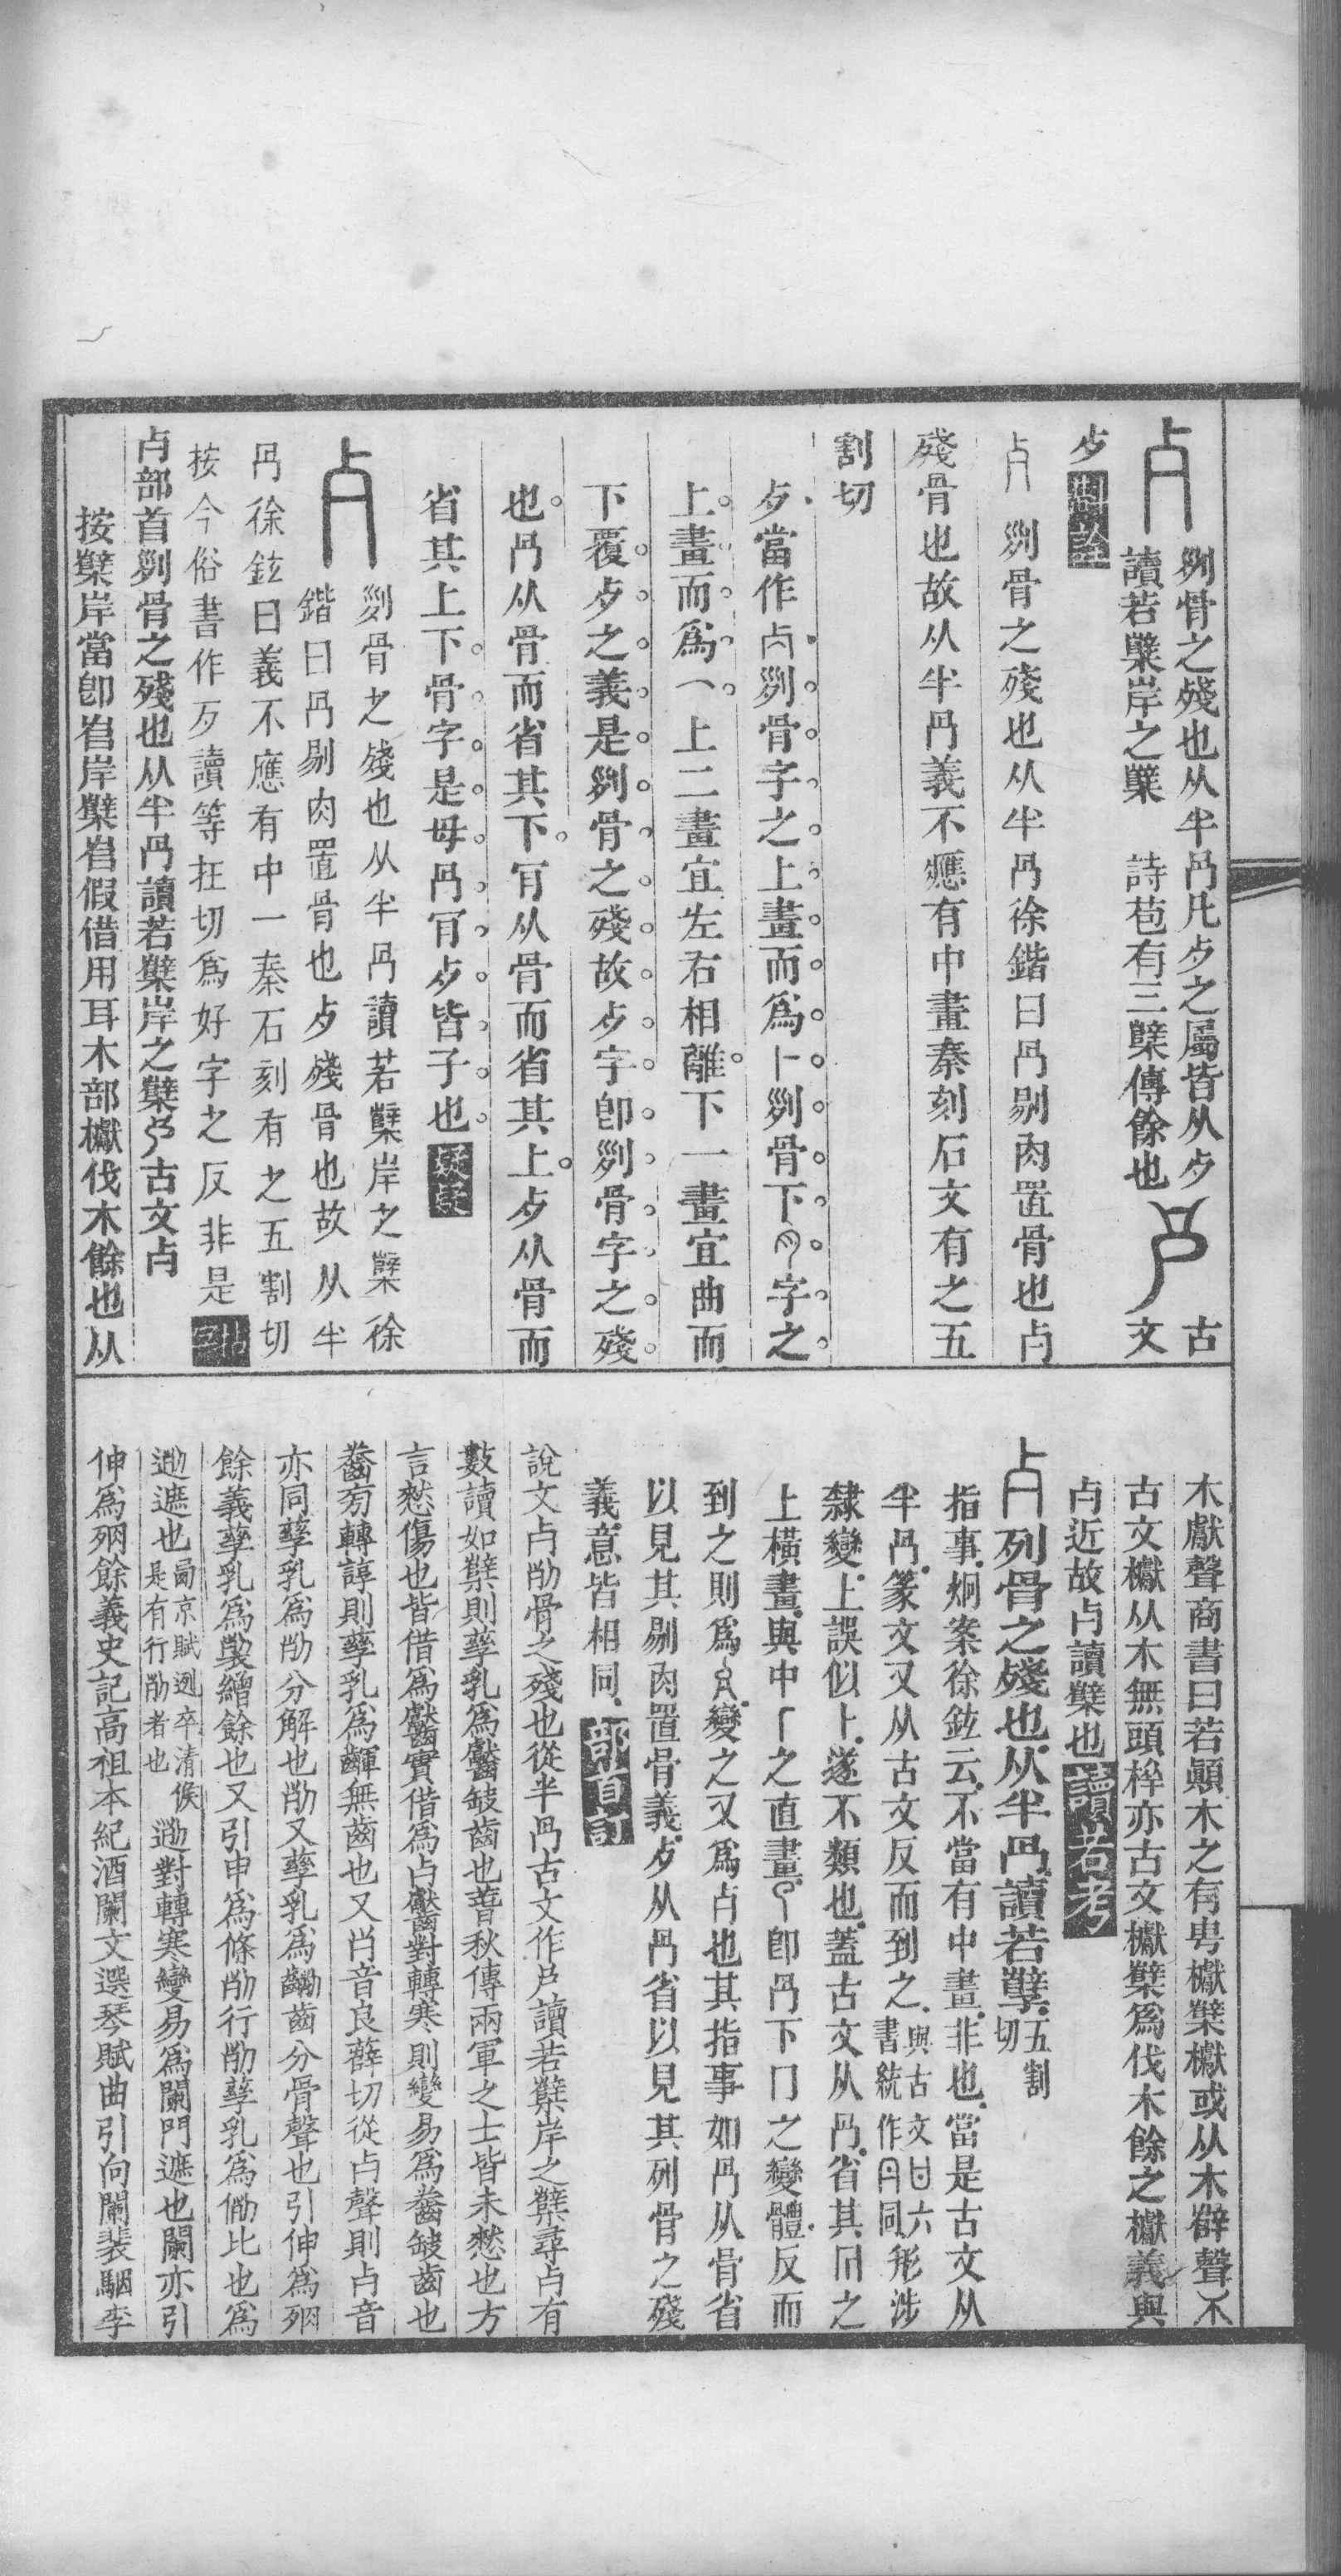 𣦵 𠛱骨之殘也从半冎凡歺之屬皆从歺
讀若櫱岸之櫱 詩苞有三櫱傳餘也 古文
歺
𣦵 𠛱骨之殘也从半冎徐鍇曰冎剔肉置骨也𣦵
殘骨也故从半冎義不應有中畫秦刻石文有之五
割切
歺當作𣦵𠛱骨字之上畫而爲卜𠛱骨下字之
上畫而爲㇀上二畫宜左右相離下一畫宜曲而
下覆歺之義是𠛱骨之殘故歺字卽𠛱骨字之殘
也冎从骨而省其下肎从骨而省其上歺从骨而
省其上下骨字是母冎肎歺皆子也
𣦵 𠛱骨之殘也从半冎讀若櫱岸之櫱徐
鍇曰冎剔肉置骨也歺殘骨也故从半
冎徐鉉曰義不應有中一秦石刻有之五割切
按今俗書作歹讀等在切爲好字之反非是
𣦵部首𠛱骨之殘也从半冎讀若櫱岸之櫱古文𣦵
按櫱岸當卽㟯岸櫱㟯假借用耳木部櫱伐木餘也从
木獻聲商書曰若顚木之有㽕櫱櫱或从木辥聲不
古文櫱从木無頭㭆亦古文櫱櫱爲伐木餘之櫱義與
𣦵近故𣦵讀櫱也 讀若考
𣦵 列骨之殘也从半冎讀若櫱五割切
指事炯案徐鉉云不當有中畫非也當是古文从
半冎篆文又从古文反而到之與古文六書統作同形涉
隸變上誤似卜遂不類也蓋古文从冎省其冂之
上橫畫與中之直畫卽冎下冂之變體反而
到之則爲變之又爲𣦵也其指事如冎从骨省
以見其剔肉置骨義歺从冎省以見其列骨之殘
義意皆相同 部首訂
說文𣦵𠛱骨之殘也從半冎古文作讀若櫱岸之櫱尋𣦵有
數讀如櫱則孳乳爲缺齒也春秋傳兩軍之士皆未憖也方
言憖傷也皆借爲實借爲𣦵對轉寒則變易爲齤缺齒也
旁轉諄則孳乳爲齳無齒也又𣦵音良薛切從𣦵聲則𣦵音
亦同孳乳爲𠛱分解也𠛱又孳乳爲齒分骨聲也引伸爲
餘義孳乳爲繒餘也又引申爲條𠛱行𠛱孳乳爲例比也爲
迾遮也是有行𠛱者也迾對轉寒變易爲闌門遮也闌亦引
伸爲殘餘義史記高祖本紀酒闌文選琴賦曲引向闌裴駰李